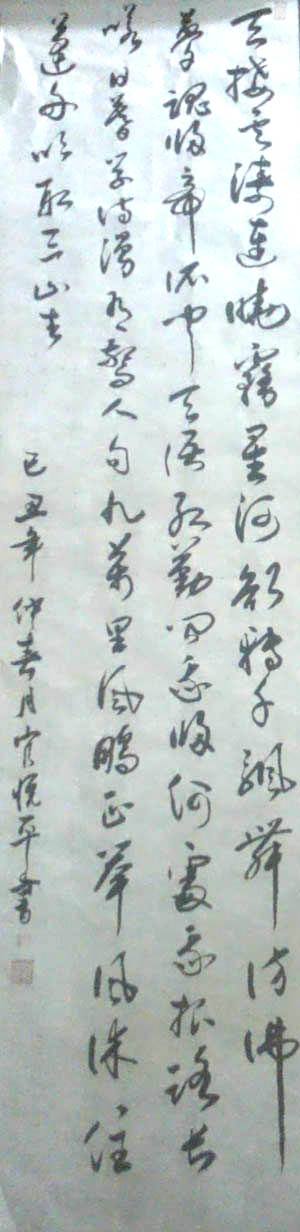 天接云涛连晓雾星河欲转千帆舞仿佛
梦魂归帝所闻天语殷勤问我归何处我报路长
嗟日暮学诗漫有惊人句九万里风鹏正举风休住
蓬舟吹取三山去
己丑年仲春月官悦平书